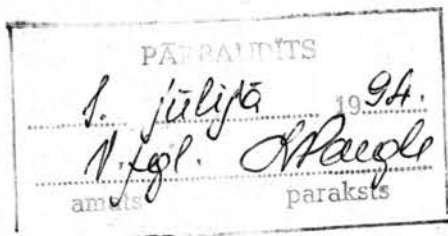 PĀRRAUDĪTS
1. jūlijā 1994.
V. fgl.
amats paraksts